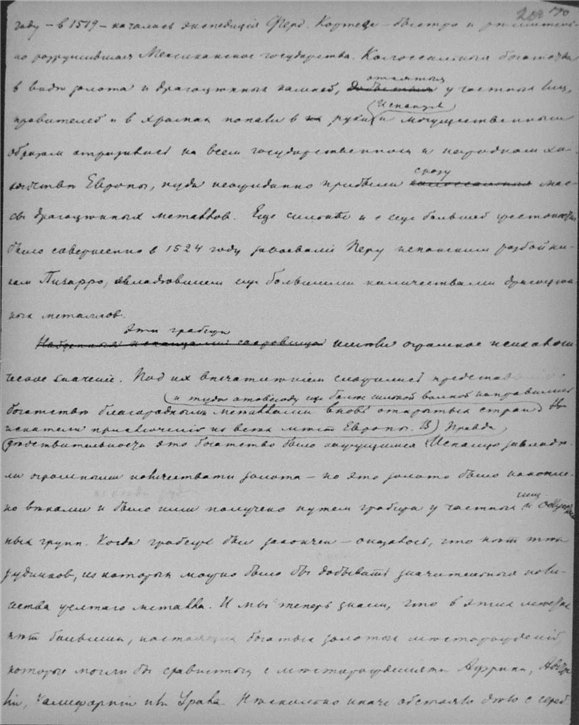 году – в 1519 – началась экспедиция Ферд. Кортеца – быстро и
но разрушившая Мексиканское государство. Колоссальныя богатства
отнятыя
в виде золота и драгоценных камней, у частных лиц,
Испанцев
правителей и в храмах попали в руки и могущественным
образом отразились на всем государственном и народном хо-
сразу
зяйстве Европы, куда неожиданно прибыли мас-
сы драгоценных металлов. Еще сильнее и с еще большей жестокостью
было совершенно в 1524 году завоевание Перу испанским разбойни-
ком Пизарро, овладевшим еще большими количествами драгоцен-
ных металлов.
Эти грабежи
Найденныя испанцами сокровища имели огромное психологи-
ческое значение. Под их впечатлением сложилось представ
и туда отовсюду еще более сильной волной направились
богатстве благородными металлами вновь открытых стран
искатели приключений из всех мест Европы. В) Правда
действительности это богатство было Испанцы завладе-
ли огромными количествами золота – но это золото было накопле-
но веками и было ими получено путем грабежа у частных лиц и
ных групп. Когда грабеж был закончен – оказалось, что нет тех
рудников, из которых можно было бы добывать значительныя коли-
чества желтаго металла. И мы теперь знаем, что в этих местах
нет больших, настоящих богатых золотых месторождений
которые могли бы сравниться с месторождениями Африки,
Калифорнии или Урала. Несколько иначе обстояло дело с сереб